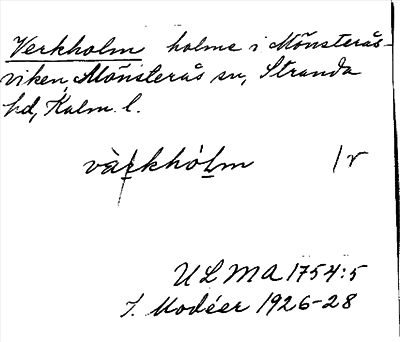 Verkholm holme i Mönsterås-
viken, Mönsterås sn, Stranda
hd, Kalm. l.
vàrkhòlm /r
ULMA 1754:5
I. Modéer 1926-28